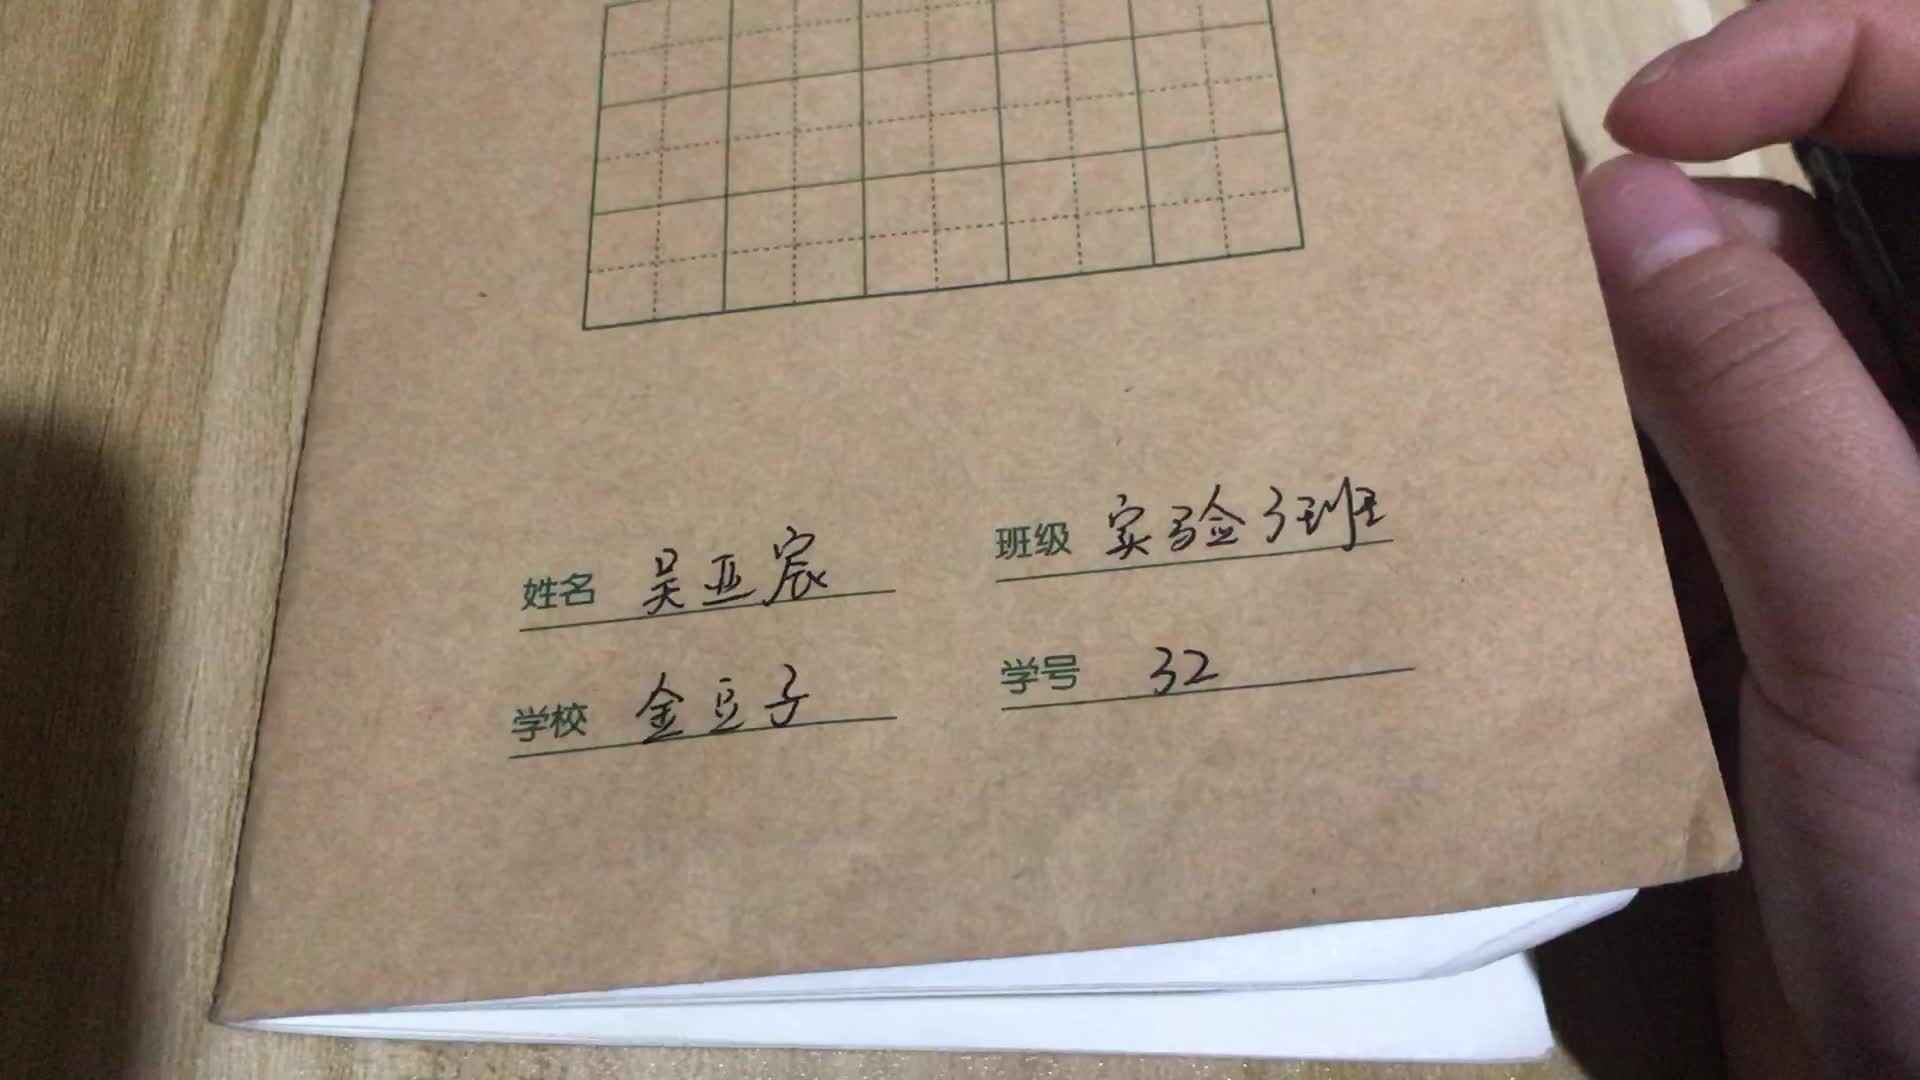 姓名 吴亚宸
班级 实验3班
学校 金豆子
学号 32